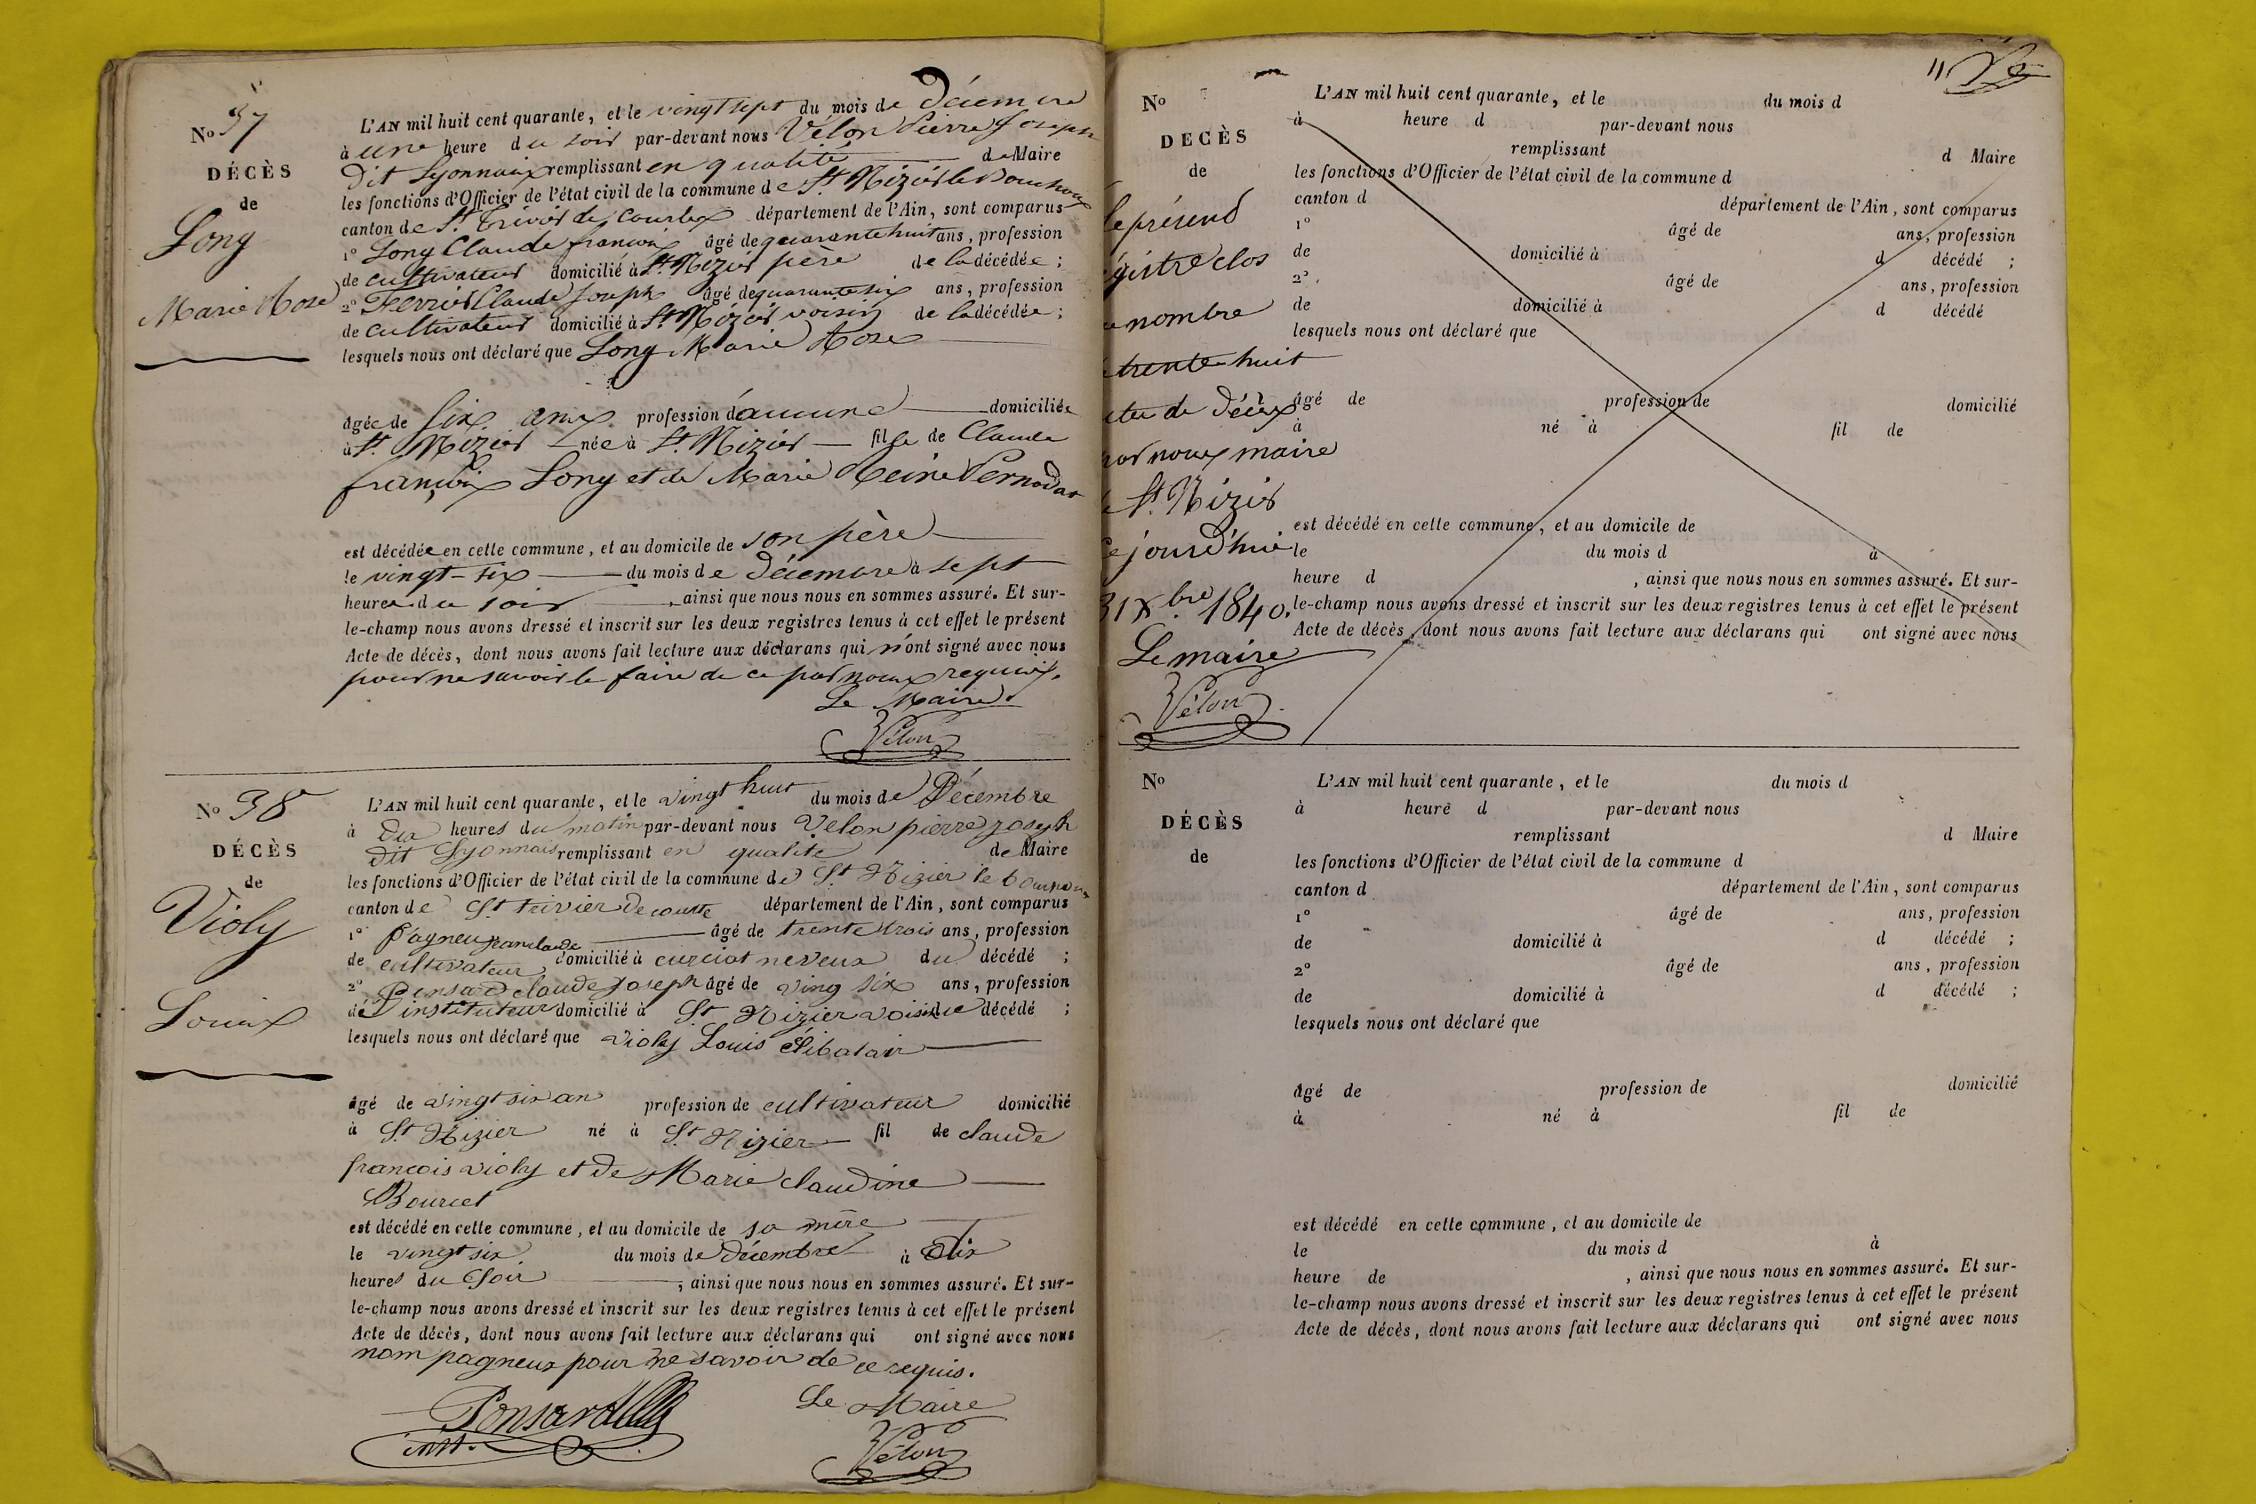 No 37
DÉCÈS
de
Long
Marie Rose
L'AN mil huit cent quarante, et le vingt sept du mois de Décembre
à une heure du soir par-devant nous Vélon Pierre Joseph
dit Lyonnais remplissant en qualité de Maire
les fonctions d'Officier de l'état civil de la commune de St Nizier le Bouchoux
canton de St Trivier de Courtes département de l'Ain, sont comparus
1o Long Claude françois âgé de quarante huit ans, profession
de cultivateur domicilié à St Nizier père de la décédée ;
2o Ferrier Claude Joseph âgé de quarante six ans, profession
de cultivateur domicilié à St Nizier voisin de la décédée ;
lesquels nous ont déclaré que Long Marie Rose
âgée de six ans profession d'aucune domiciliée
à St Nizier née à St Nizier fille de Claude
françois Long et de Marie Reine Pernodat
est décédée en cette commune, et au domicile de son père
le vingt-six du mois de décembre à sept
heures du soir, ainsi que nous nous en sommes assuré. Et sur-
le-champ nous avons dressé et inscrit sur les deux registres tenus à cet effet le présent
Acte de décès, dont nous avons fait lecture aux déclarans qui n'ont signé avec nous
pour ne savoir le faire de ce par nous requis.
Le Maire.
Vélon
No 38
DÉCÈS
de
Violy
Louis
L'AN mil huit cent quarante, et le vingt huit du mois de Décembre
à dix heures du matin par-devant nous Velon pierre joseph
dit Lyonnais remplissant en qualité de Maire
les fonctions d'Officier de l'état civil de la commune de St Nizier le bouchoux
canton de St trivier de courte département de l'Ain, sont comparus
1o Pagneu jean claude âgé de trente trois ans, profession
de cultivateur domicilié à curciat neveux du décédé ;
2o Ponsard claude Joseph âgé de ving six ans, profession
de d'instituteur domicilié à St Nizier voisin du décédé ;
lesquels nous ont déclaré que violy Louis Célibatair
âgé de vingt six an profession de cultivateur domicilié
à St Nizier né à St Nizier fil de claude
francois violy et de Marie claudine
Bourcet
est décédé en cette commune, et au domicile de sa mère
le vingt six du mois de décembre à dix
heures du soir, ainsi que nous nous en sommes assuré. Et sur-
le-champ nous avons dressé et inscrit sur les deux registres tenus à cet effet le présent
Acte de décès, dont nous avons fait lecture aux déclarans qui ont signé avec nous
nom pagneux pour ne savoir de ce requis.
Ponsard
inst.
Le Maire
Vélon
11
No
DECÈS
de
Le présend
égistre clos
nombre
trente huit
acte de décès
par nous maire
St Nizier
ce jourd'hui
31 Xbre 1840.
Le maire
Vélon
L'AN mil huit cent quarante, et le du mois d
à heure d par-devant nous
remplissant d Maire
les fonctions d'Officier de l'état civil de la commune d
canton d département de l'Ain, sont comparus
1o âgé de ans, profession
de domicilié à d décédé ;
2o âgé de ans, profession
de domicilié à d décédé
lesquels nous ont déclaré que
âgé de profession de domicilié
à né à fil de
est décédé en cette commune, et au domicile de
le du mois d à
heure d , ainsi que nous nous en sommes assuré. Et sur-
le-champ nous avons dressé et inscrit sur les deux registres tenus à cet effet le présent
Acte de décès, dont nous avons fait lecture aux déclarans qui ont signé avec nous
No
DÉCÈS
de
L'AN mil huit cent quarante, et le du mois d
à heure d par-devant nous
remplissant d Maire
les fonctions d'Officier de l'état civil de la commune d
canton d département de l'Ain, sont comparus
1o âgé de ans, profession
de domicilié à d décédé ;
2o âgé de ans, profession
de domicilié à d décédé ;
lesquels nous ont déclaré que
âgé de profession de domicilié
à né à fil de
est décédé en cette commune, et au domicile de
le du mois d à
heure de , ainsi que nous nous en sommes assuré. Et sur-
le-champ nous avons dressé et inscrit sur les deux registres tenus à cet effet le présent
Acte de décès, dont nous avons fait lecture aux déclarans qui ont signé avec nous